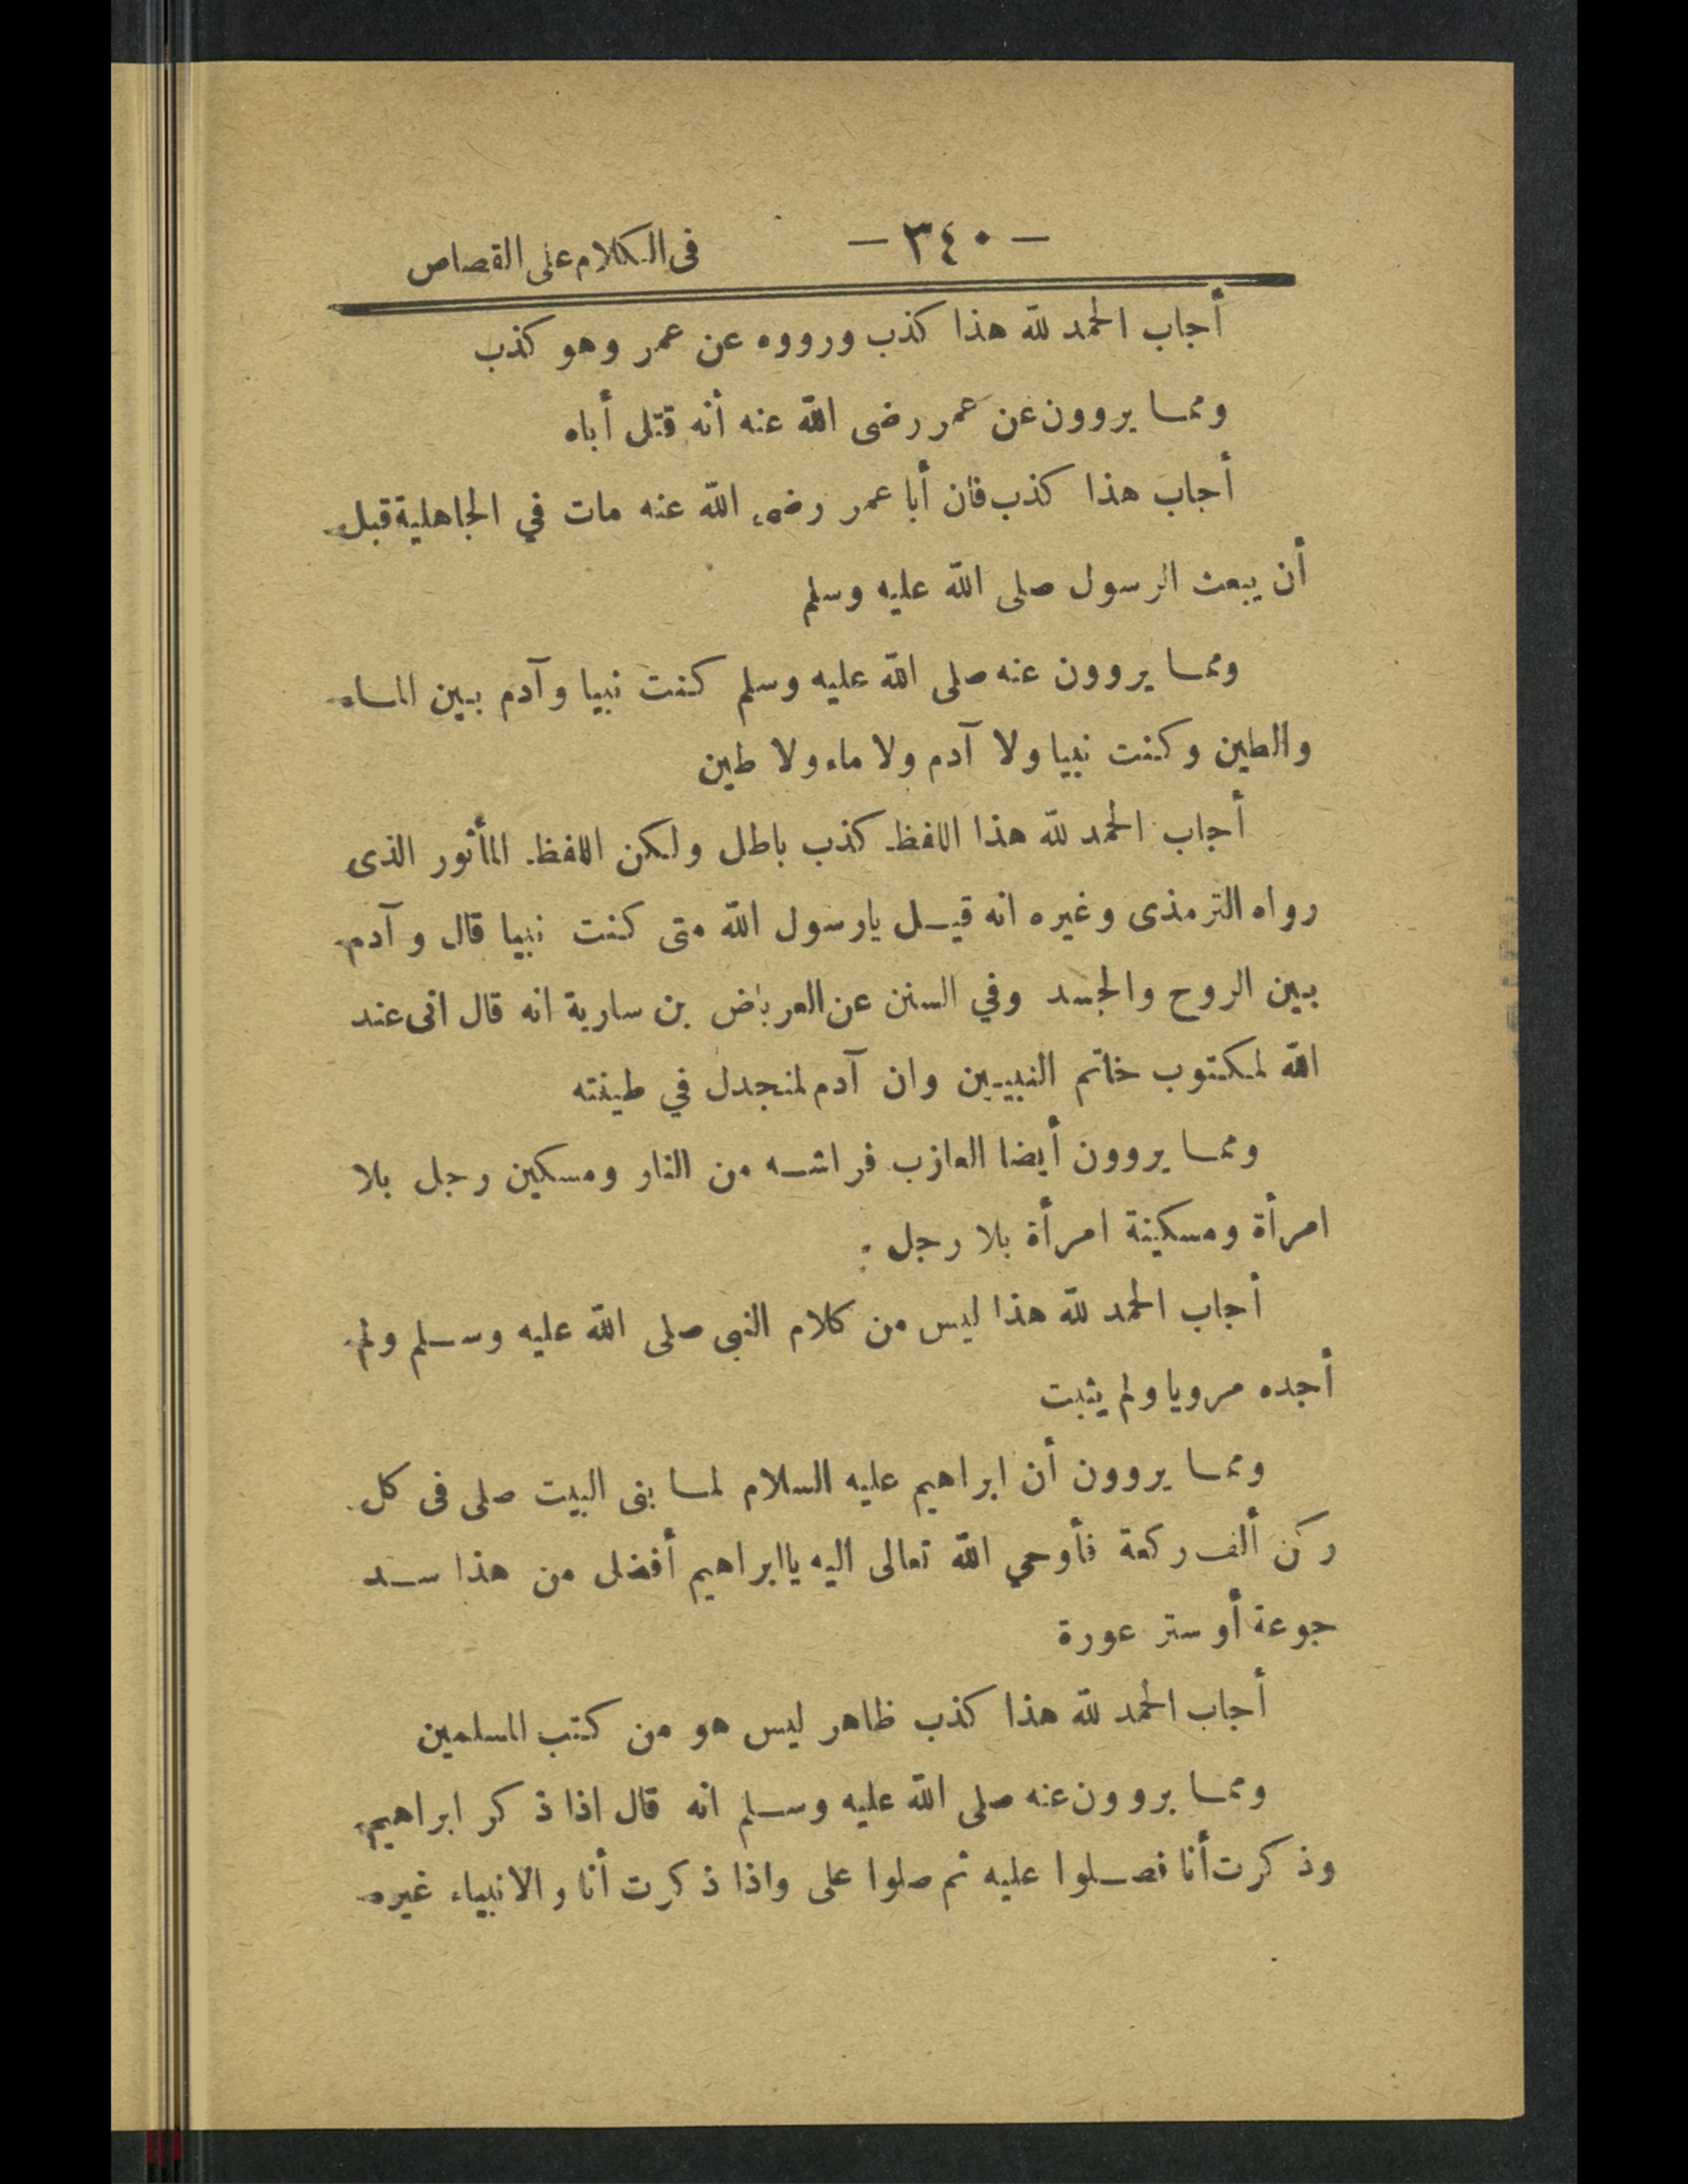 — ٣٤٠ — فى الكلام على القصاص
أجاب الحمد لله هذا كذب ورووه عن عمر وهو كذب
ومما يروون عن عمر رضى الله عنه أنه قتل أباه
أجاب هذا كذب فان أبا عمر رضى الله عنه مات في الجاهلية قبل
أن يبعث الرسول صلى الله عليه وسلم
ومما يروون عنه صلى الله عليه وسلم كنت نبيا وآدم بين الماء
والطين وكنت نبيا ولا آدم ولا ماء ولا طين
أجاب الحمد لله هذا اللفظ كذب باطل ولكن اللفظ المأثور الذى
رواه الترمذى وغيره انه قيل يارسول الله متى كنت نبيا قال وآدم
بين الروح والجسد وفي السنن عن العرباض بن سارية انه قال انى عند
الله لمكتوب خاتم النبيين وان آدم لمنجدل في طينته
ومما يروون أيضا العازب فراشه من النار ومسكين رجل بلا
امرأة ومسكينة امرأة بلا رجل :
أجاب الحمد لله هذا ليس من كلام النبى صلى الله عليه وسلم ولم
أجده مرويا ولم يثبت
ومما يروون أن ابراهيم عليه السلام لما بنى البيت صلى فى كل
ركن ألف ركعة فأوحي الله تعالى اليه ياابراهيم أفضل من هذا سد
جوعة أو ستر عورة
أجاب الحمد لله هذا كذب ظاهر ليس هو من كتب المسلمين
ومما يروون عنه صلى الله عليه وسلم انه قال اذا ذكر ابراهيم
وذكرت أنا فصلوا عليه ثم صلوا على واذا ذكرت أنا والانبياء غيره